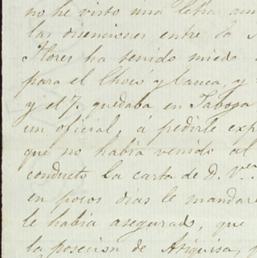 no he visto una letra
las disenciones entre la
Flores ha tenido miedo
para el Chocó y Cauca, y
y el 7. quedaba en Taboga
un oficial, á pedirle
que no habia venido al
conducto la carta de D. V.
en pocos dias le
le habia asegurado, que
la posecion de